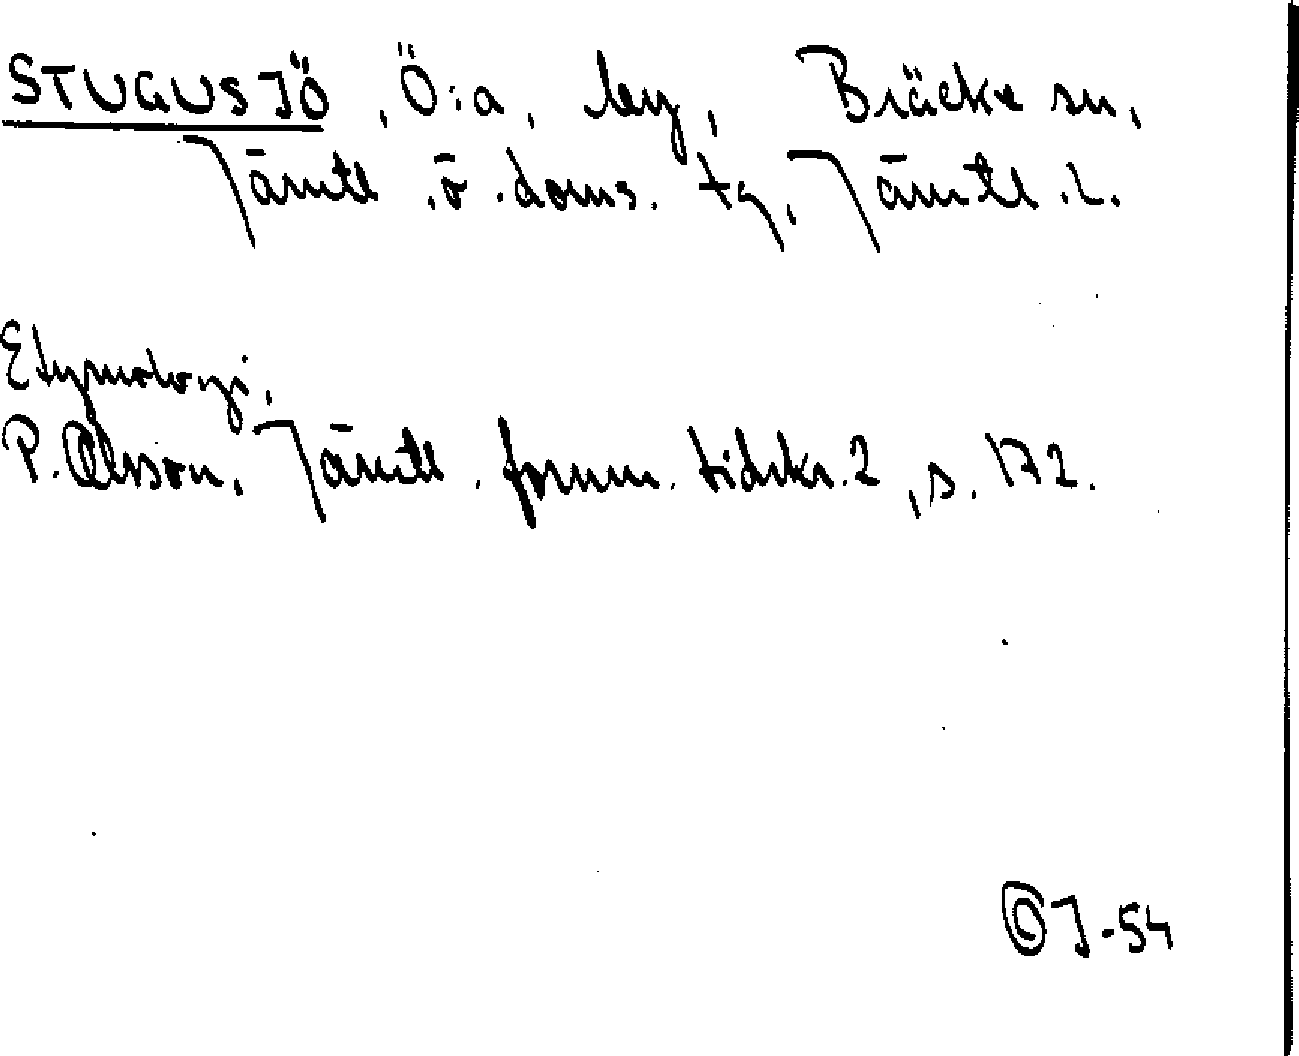 STUGUSJÖ, Ö:a, by, Bräcke sn,
Jämtl. ö. doms. tg, Jämtl. L.
Etymologi,
P. Olsson, Jämtl. fornm. tidskr. 2, s. 172.
J-54